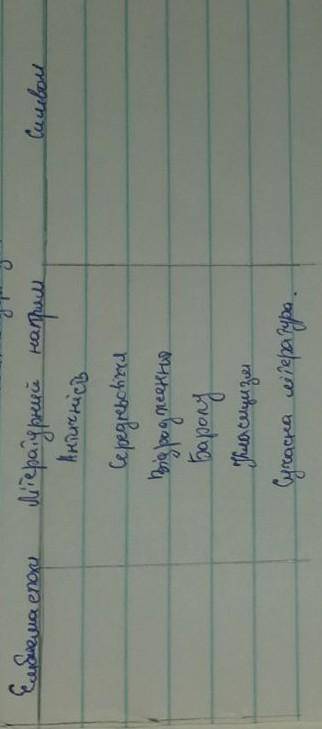 Емблема епохи Літературний напрям Символ
Античність
Середньовіччя
Відродження
Бароко
Класицизм
Сучасна література.